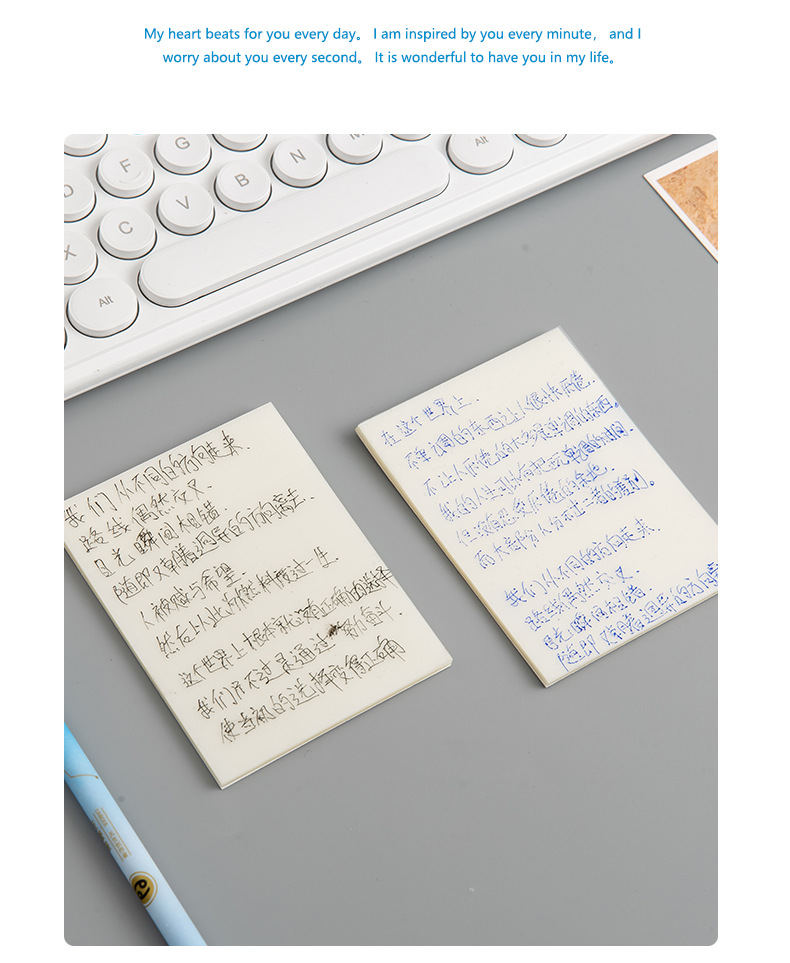 My heart beats for you every day。 I am inspired by you every minute， and I
worry about you every second。 It is wonderful to have you in my life。
G
F
D
N
B
V
C
X
Alt
Alt
我们从不同的方向走来.
路线偶然交叉.
目光瞬间相错
随即又朝着迥异的方向离去.
人被赋与希望.
然后以此为燃料度过一生.
这个世界上根本就没有正确的选择
我们只不过是通过努力奋斗.
使当初的选择变得正确
在这个世界上.
不单调的东西让人很快厌倦.
不让人厌倦的大多是单调的东西.
我们从不同的方向走来.
路线偶然交叉.
目光瞬间相错
随即又朝着迥异的方向离